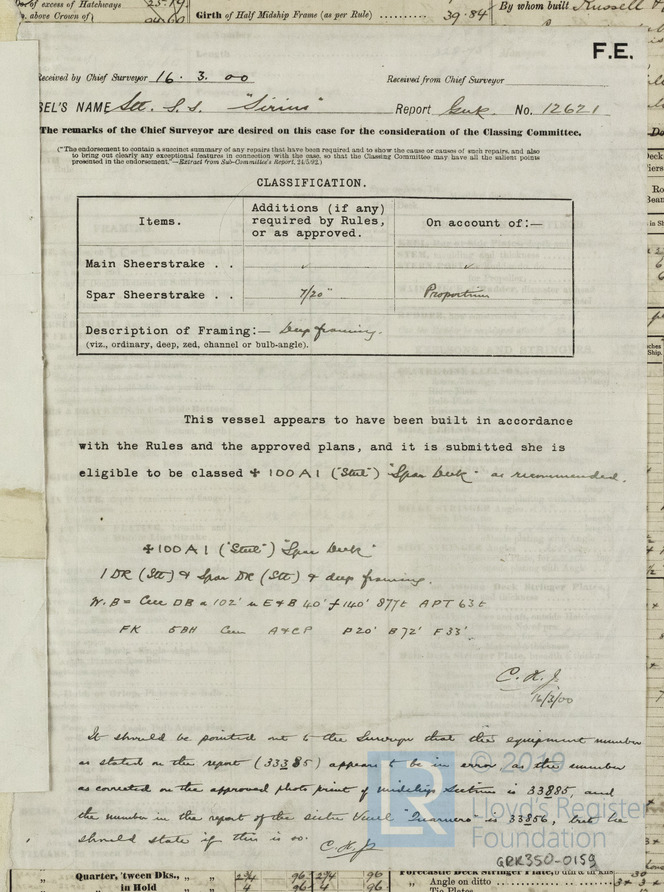 of excess of Hatchways
above Crown of
Girth of Half Midship Frame (as per Rule) .......... 39.84
By whom built Russell &
F.E.
Received by Chief Surveyor 16. 3. 00
Received from Chief Surveyor
SEL'S NAME Stl. S.S. "Sirius"
Report Grk. No. 12621
The remarks of the Chief Surveyor are desired on this case for the consideration of the Classing Committee.
("The endorsement to contain a succinct summary of any repairs that have been required and to show the cause or causes of such repairs, and also
to bring out clearly any exceptional features in connection with the case, so that the Classing Committee may have all the salient points
presented in the endorsement."—Extract from Sub-Committee's Report, 24/5/92.)
CLASSIFICATION.
Items.
Additions (if any)
required by Rules,
or as approved.
On account of:—
Main Sheerstrake . .
Spar Sheerstrake . . 7/20" Proportion
Description of Framing:— Deep framing.
(viz., ordinary, deep, zed, channel or bulb-angle).
This vessel appears to have been built in accordance
with the Rules and the approved plans, and it is submitted she is
eligible to be classed ✠ 100 A 1 ("Steel") "Spar Deck" as recommended.
✠ 100 A 1 ("Steel") "Spar Deck"
1 DK (Stl) & Spar DK (Stl) & deep framing.
W.B = Cell DB a 102' u E & B 40' f 140' 877t APT 63t
FK 5BH Cem A & CP P20' B72' F33'.
16/3/00
It should be pointed out to the Surveyor that the equipment number
as stated on the report (33385) appears to be in error, as the number
as corrected on the approved photo print of midship section is 33885, and
the number in the report of the sister vessel is 33856, but he
should state if this is so.
© 2019
Lloyd's Register
Foundation
GRK350-0159
Quarter, 'tween Dks., " " 96 96
" in Hold " " 4 96 4 96
Forecastle Deck Stringer Plate,
" Angle on ditto
" Tie Plates